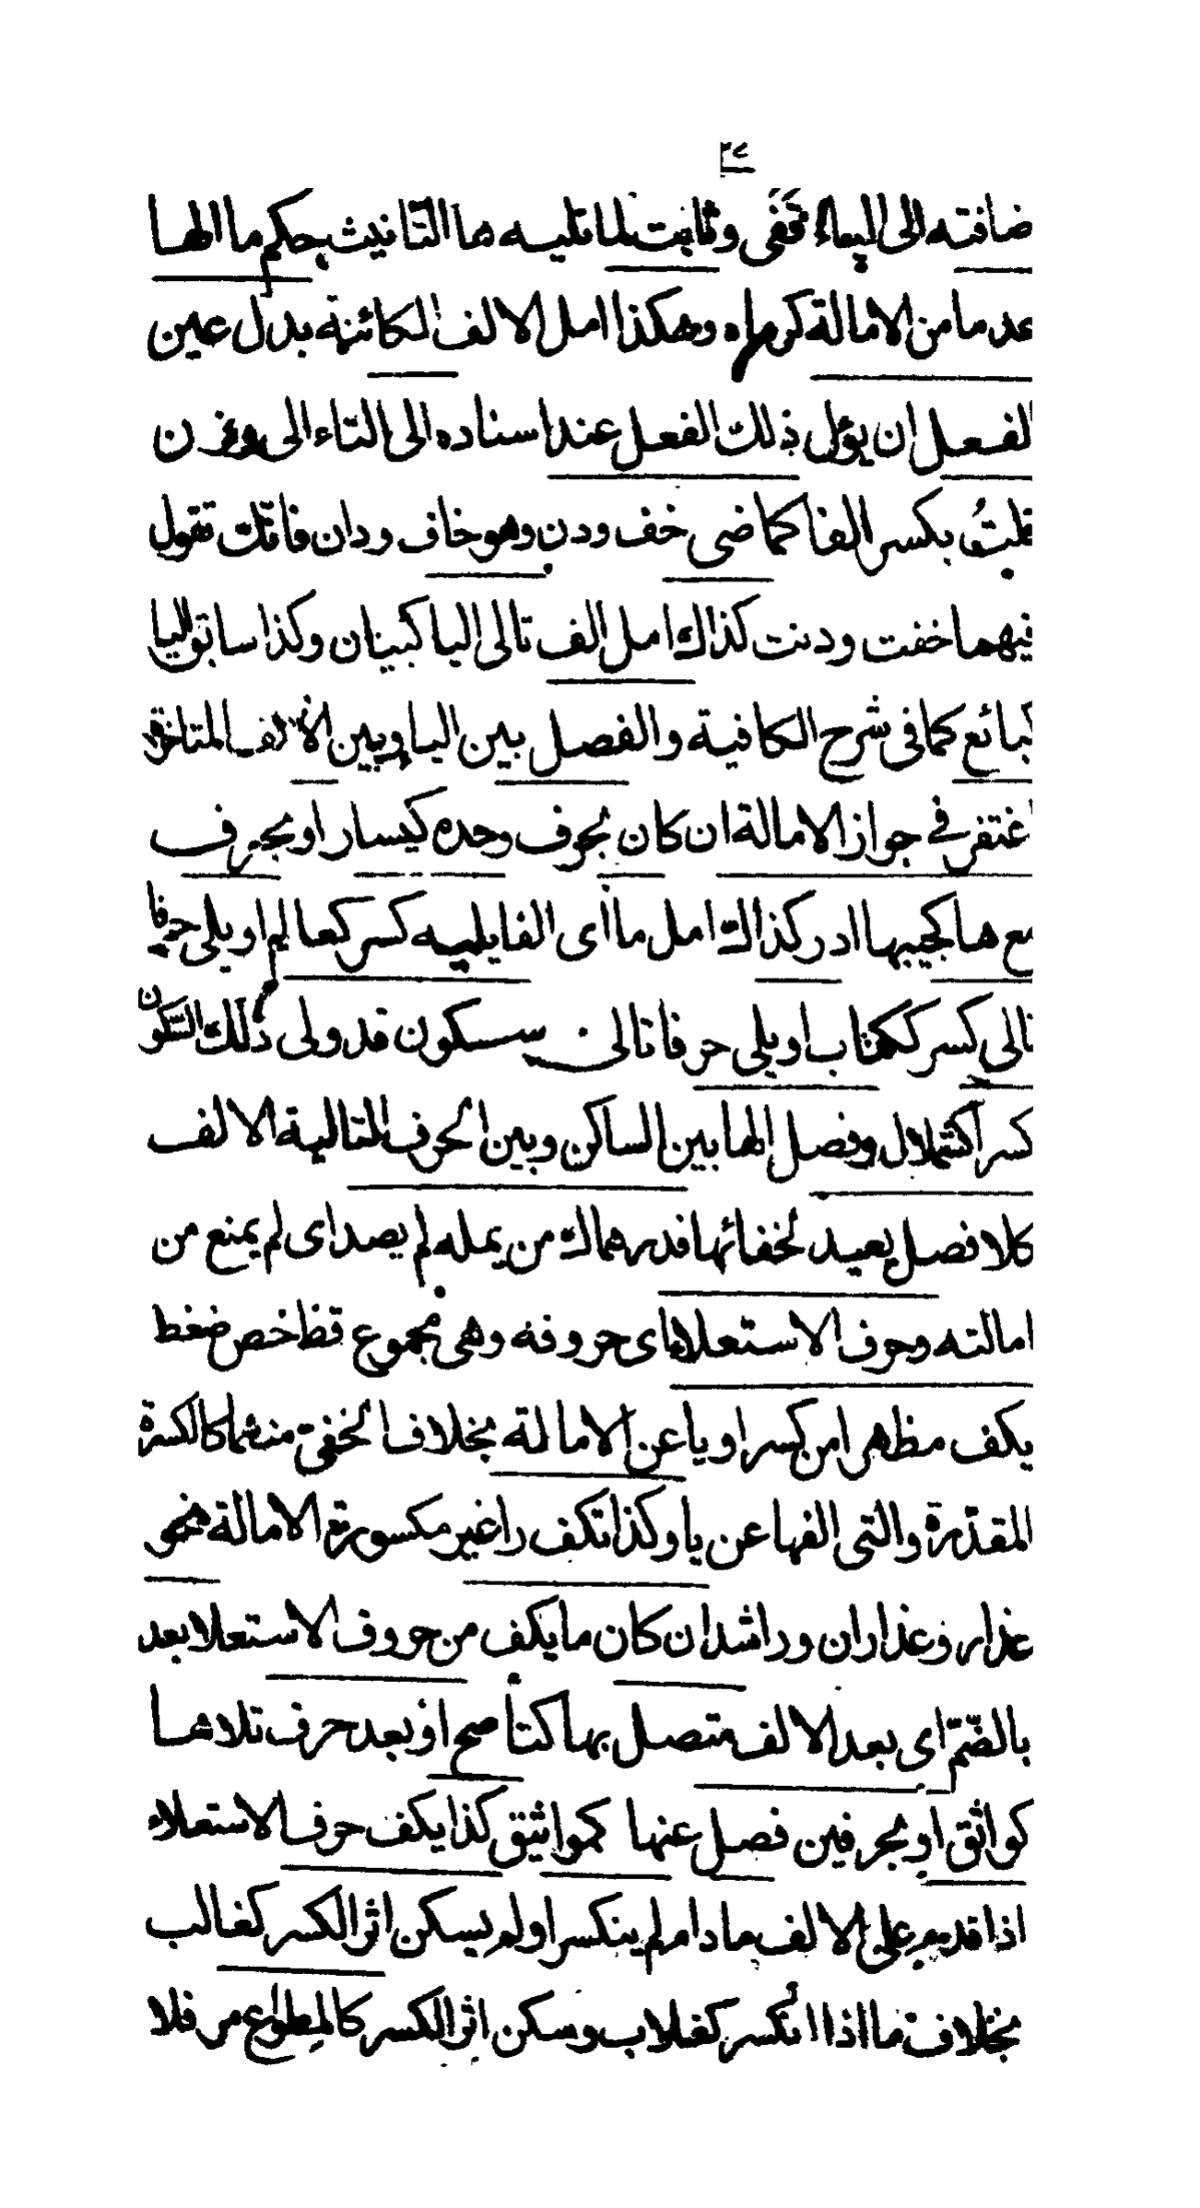 ضافته الى الياء قفى وثابت لما تليه ها التانيث حكم ما الها
عدما من الامالة كرماه وهكذا امل الالف الكائنة بدل عين
الفعل ان يؤل ذلك الفعل عند اسناده الى التاء الى وزن
فلت بكسر الفا كماضى خف ودن وهو خاف ودان فانك تقول
فيهما خفت ودنت كذاك امل الف تالى اليا كبيان وكذا سابق اليا
كبائع كما فى شرح الكافية والفصل بين اليا وبين الالف المتاخرة
اغتفر فى جواز الامالة ان كان بحرف وحده كيسار او بحرف
مع ها كجيبها ادر كذاك امل ما اى الفا يليه كسر كعالم او يلى حرفا
تالى كسر ككتاب او يلى حرفا تالى سكون قد ولى ذلك السكون
كسرا كشملال وفصل الها بين الساكن وبين الحرف المتالية الالف
كلا فصل يعيد لخفائها فدرهماك من يمله لم يصد اى لم يمنع من
امالته وحرف الاستعلا اى حروفه وهى مجموع قظ خص ضغط
يكف مظهرا من كسر او يا عن الامالة بخلاف الخفى منهما كالكسرة
المقدرة والتى الفها عن يا وكذا تكف را غير مكسورة الامالة نحو
عذار وعذاران وراشد ان كان ما يكف من حروف الاستعلا بعد
بالضم اى بعد الالف متصل بها كناصح او بعد حرف تلاها
كواثق او بحرفين فصل عنها كمواثيق كذا يكف حرف الاستعلاء
اذا قدم على الالف ما دام لم ينكسر او لم يسكن اثر الكسر كغالب
بخلاف ما اذا انكسر كغلاب وسكن اثر الكسر كالمطواع مر فلا